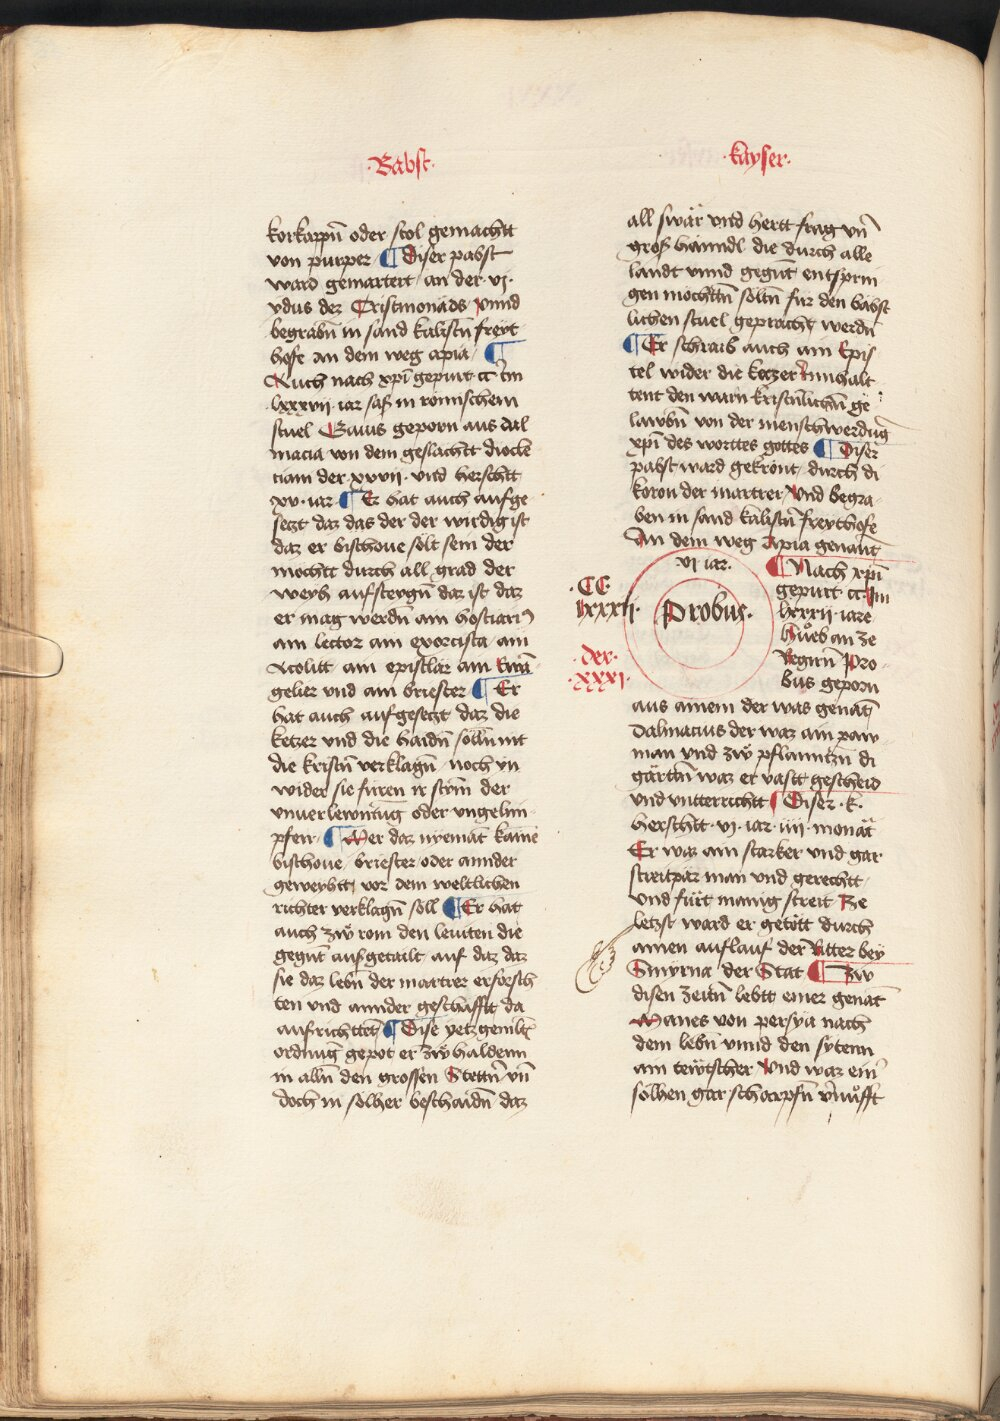 ·Babst·
korkappn̄ oder stol gemachtt
von purper ¶ Diser pabst
ward gemartert an der ·vj·
ydus des Cristmonads vnnd
begrabn̄ in sand kalistn̄ freyt
hofe an dem weg apia ¶
Auch nach xp̄i gepurt cc Im
lxxxvii iar saß in romischem
stuel Gaius geporn aus dal
macia von dem geslachtt diocle
ciani der xxvii · vnd herschtt
xv · iar ¶ Er hat auch aufge
setzt daz das der der wirdig ist
daz er bischoue solt sein der
mochtt durch all grad der
weyh aufsteygn̄ daz ist daz
er mag werdn̄ ain hostiari⁹
ain lector ain exorcista ain
Acolitt ain epistler ain Ewā
gelier vnd ain briester ¶ Er
hat auch aufgesetzt daz die
ketzer vnd die haidn̄ solln̄ nit
die kristn̄ verklagn̄ noch yn
wider sie furen ir stym̄ der
vnuerlewntūg oder vngelim
pfen ¶ Wer daz nyemāt kaine
bischoue briester oder annder
geweyhtt vor dem weltlichen
richter verklagn̄ soll ¶ Er hat
auch zẅ rom den leuiten die
gegnt aufgetailt auf daz daz
sie daz lebn̄ der martrer erforsch
ten vnd annder geschäfft da
aufrichttet ¶ Dise yetz gemlt
ordnūg gepot er zẅ haldenn
in alln̄ den grossen Stettn̄ vn̄
doch in solher beschaidn̄ daz
·kayser·
all swär vnd hertt frag vn̄
groß hänndl die durch alle
landt vnnd gegn̄t entsprin
gen mochttn̄ soltn̄ für den babst
lichen stuel geprachtt werdn̄
¶ Er schraib auch ain Epis
tel wider die ketzer Innhalt
tent den warn kristn̄lichn̄ ge
lawbn̄ von der menschwerdūg
xp̄i des worttes gottes ¶ Diser
pabst ward gekrönt durch di
koron der martrer Vnd begra
ben in sand kalistn̄ freythofe
An dem weg Apia genan̄t
vj iar·
·CC
lxxxij·
Probus·
·der·
·xxxj·
¶ Nach xp̄i
gepurt cc Im
lxxxii · iare
Hůeb an ze
Regirn̄ Pro
bus geporn
aus ainem der was genāt
Dalmatius der waz ain paw
man vnd zẅ pflanntzn̄ di
gärttn̄ waz er vastt gescheid
vnd vntterrichtt ¶ Diser · k·
herschtt · vj · iar · iiij · monät
Er waz ain starker vnd gar
streitpär man vnd gerechtt
vnd fürt manig streit Ze
letzst ward er getött durch
ainen auflauf der Ritter bey
Smyrna der Stat ¶ Zw
disen zeitn̄ lebtt einer genāt
Manes von persya nach
dem lebn̄ vnnd den sytenn
ain tewtscher Vnd waz ein
solhen gar scharpfn̄ v̄nufft